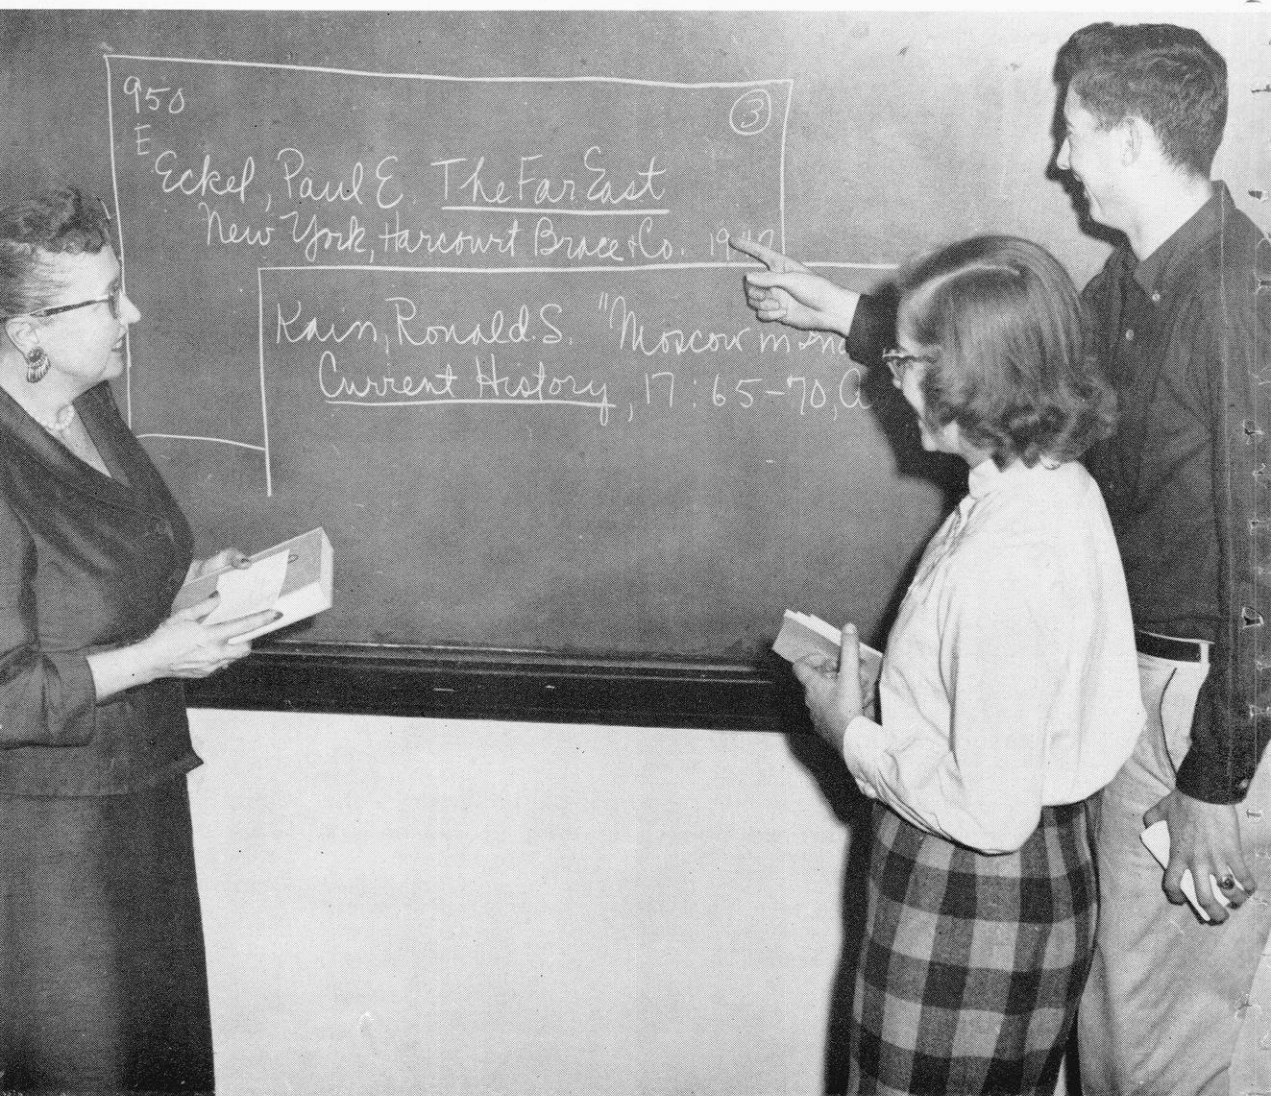 950
③
E
Eckel, Paul E. The Far East
New York, Harcourt Brace & Co.
Kain, Ronald S. "Moscow in
Current History, 17:65-70,